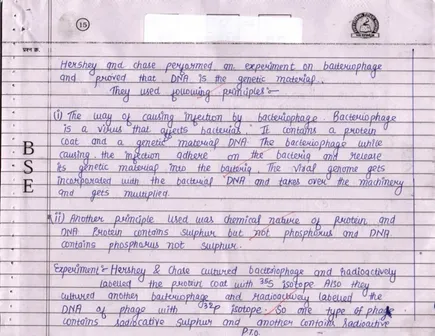 15
प्रश्न क्र.
BSE
Hershey and chase performed an experiment on bacteriophage
and proved that DNA is the genetic material.
They used following principles:-
(i) The way of causing infection by bacteriophage. Bacteriophage
is a virus that affects bacterial. It contains a protein
coat and a genetic material DNA. The bacteriophage while
causing the infection adhere on the bacteria and release
its genetic material into the bacteria. The viral genome gets
incorporated with the bacterial DNA and takes over the machinery
and gets multiplied.
(ii) Another principle used was chemical nature of protein and
DNA Protein contains sulphur but not phosphorus and DNA
contains phosphorus not sulphur.
Experiment:- Hershey & Chase cultured bacteriophage and radioactively
labelled the protein coat with 35S isotope Also they
cultured another bacteriophage and radioactively labelled the
DNA of phage with 32P isotope. So one type of phage
contains radioactive sulphur and another contains radioactive
P.T.O.